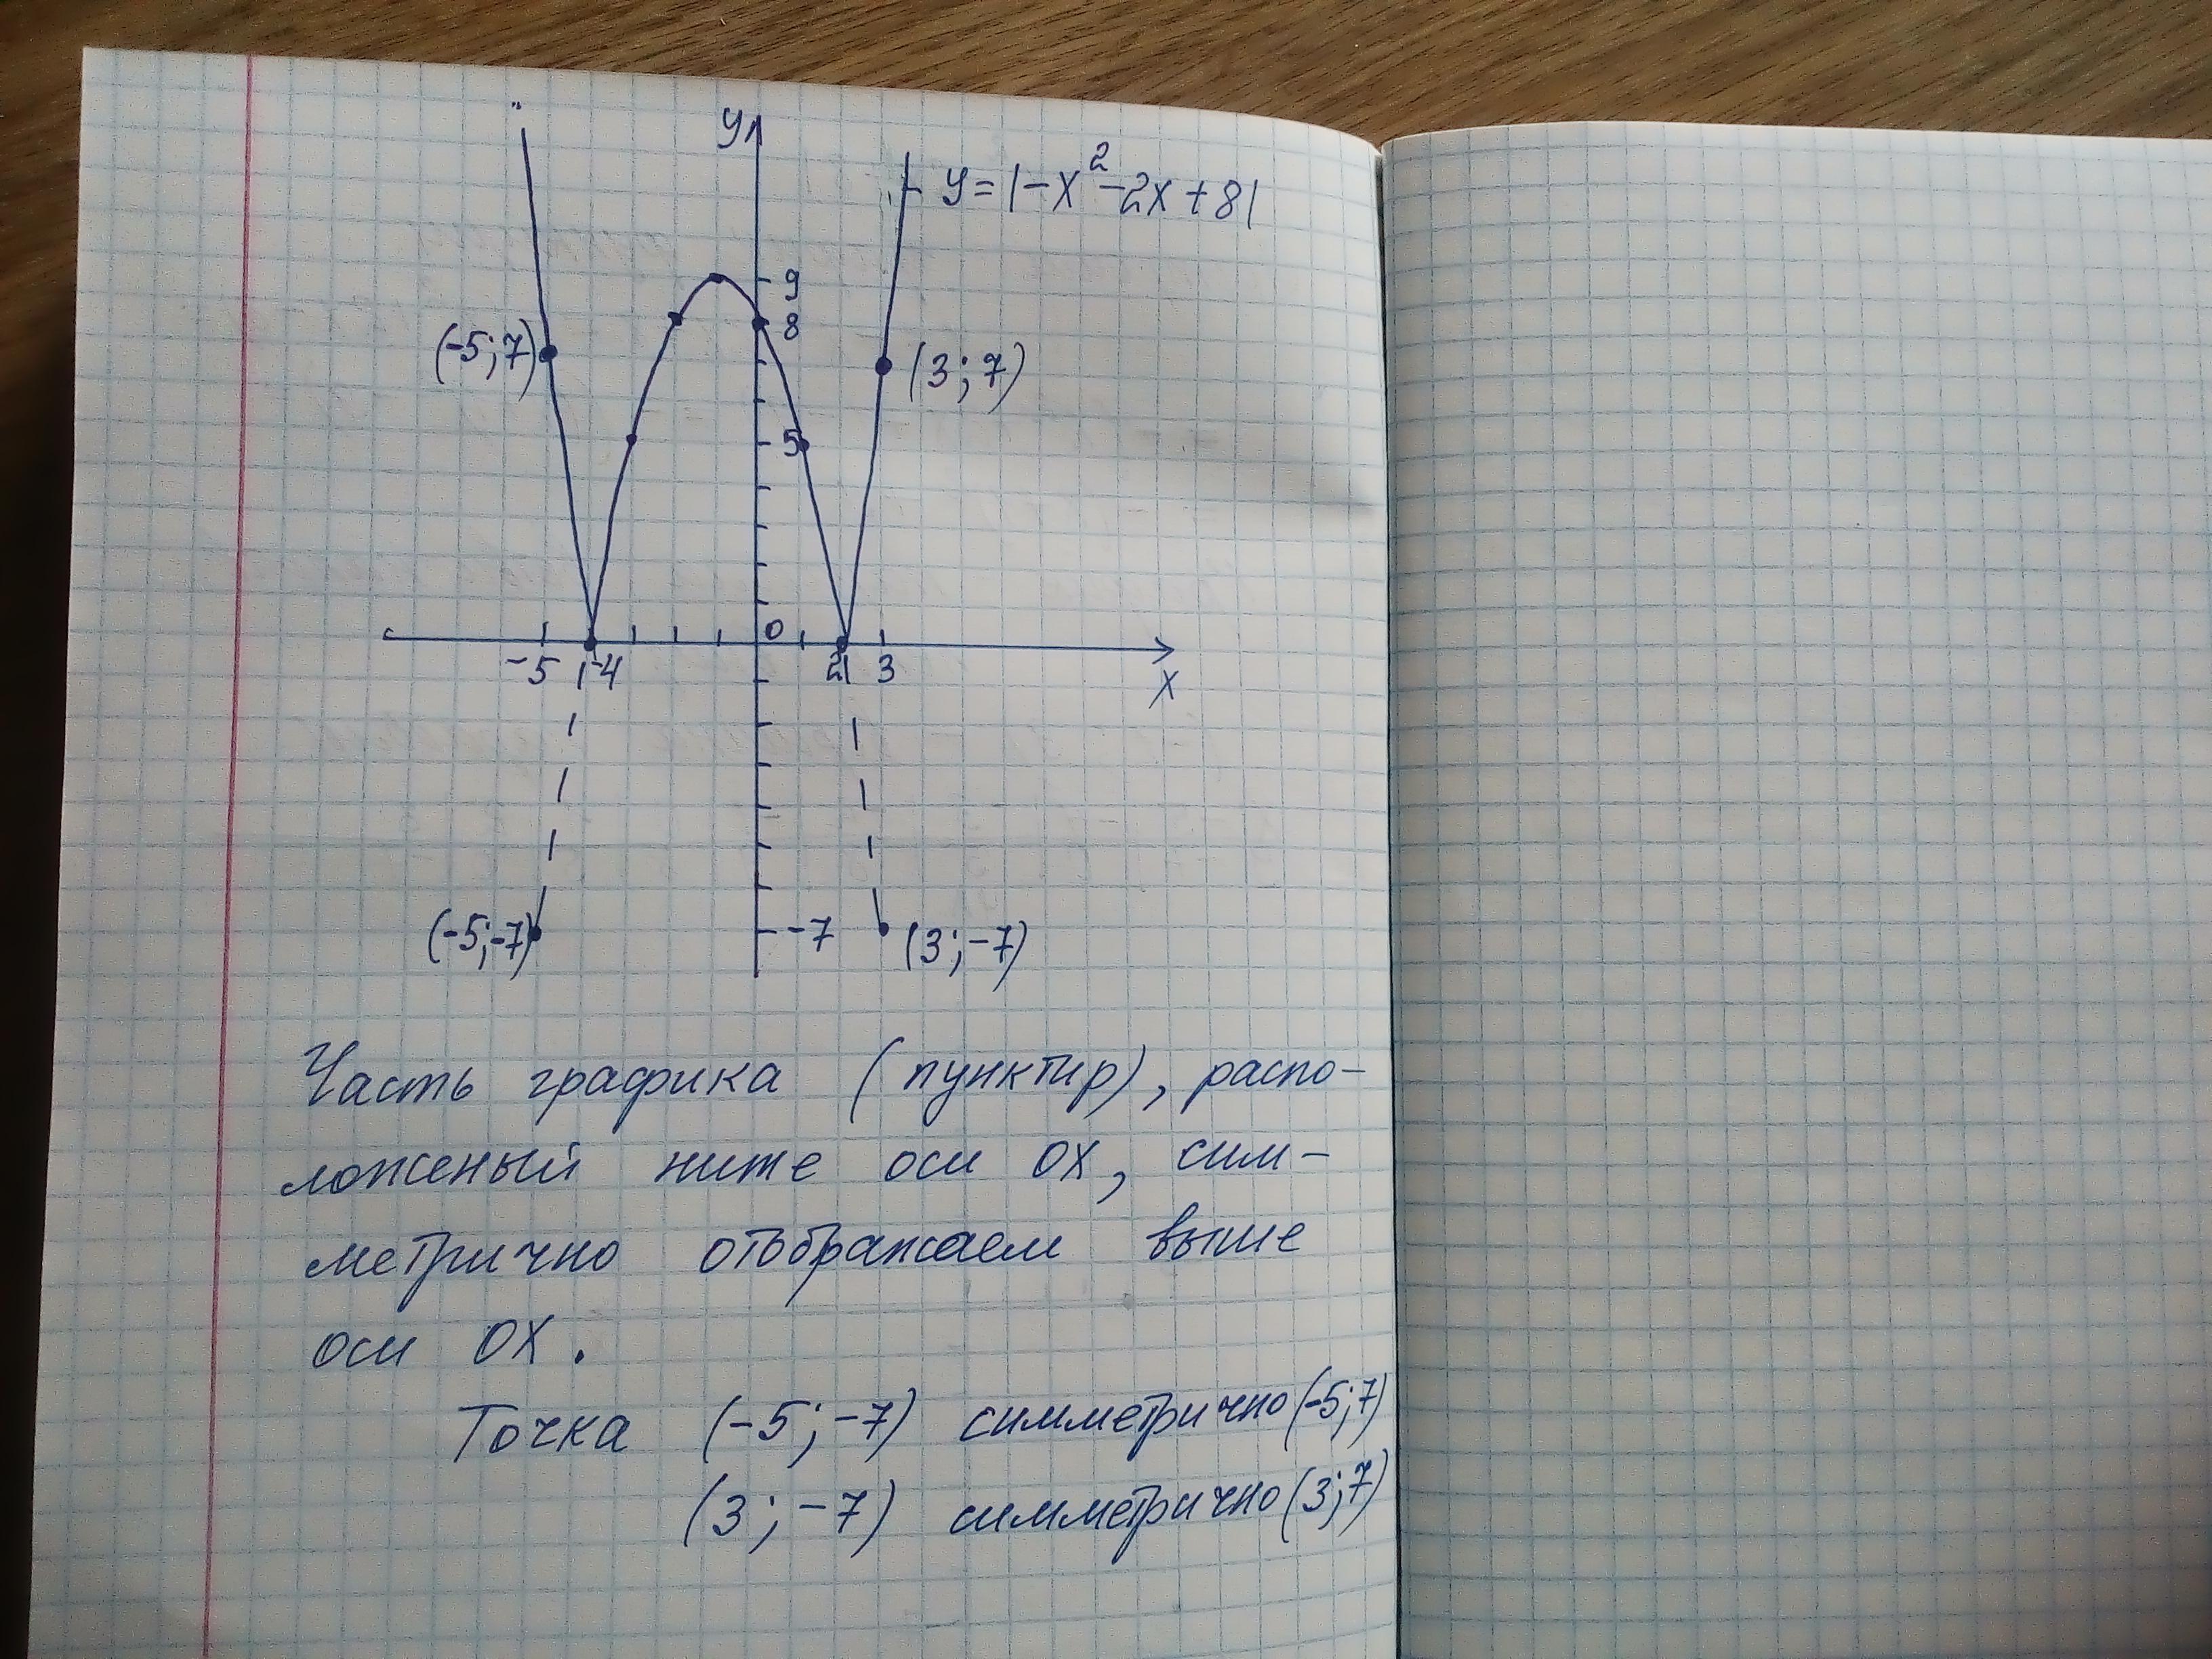 y
y=|-x²-2x+8|
9
8
(-5;7)
(3;7)
5
0
-5 -4 2 3
x
(-5;-7)
-7
(3;-7)
Часть графика (пунктир), распо-
ложеный ниже оси OX, сим-
метрично отображаем выше
оси OX.
Точка (-5;-7) симметрично (-5;7)
(3;-7) симметрично (3;7)